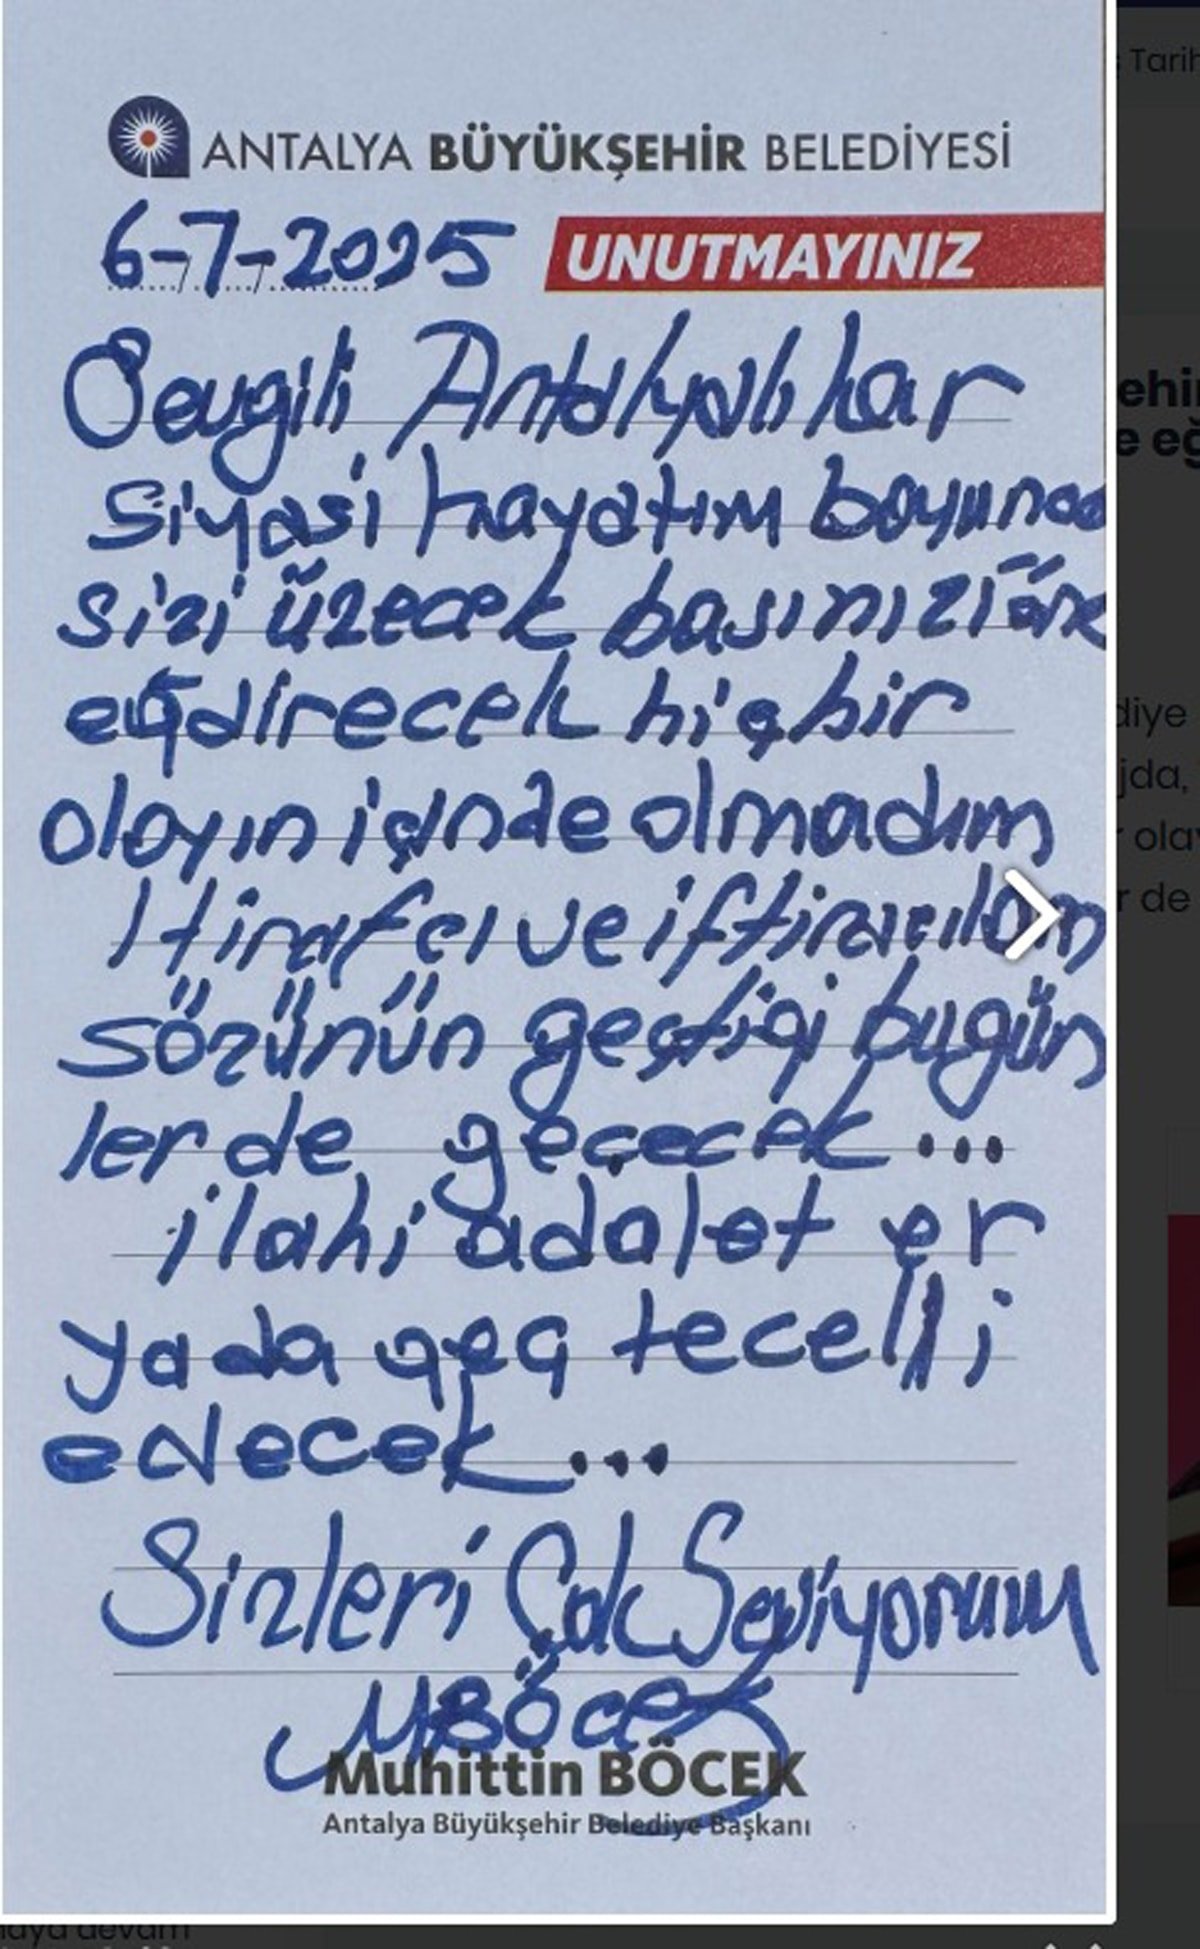 ANTALYA BÜYÜKŞEHİR BELEDİYESİ
6-7-2025 UNUTMAYINIZ
Sevgili Antalyalılar
siyasi hayatım boyunca
sizi üzecek basınızı öne
eğdirecek hiçbir
olayın içinde olmadım
Itirafcı ve iftiracıların
sözünün geçtiği bugün
lerde geçecek...
ilahi adalet er
yada geç tecelli
edecek...
Sizleri Çok Seviyorum
MBöcek
Muhittin BÖCEK
Antalya Büyükşehir Belediye Başkanı
Tarih
ehir
e eğ
diye
jda,
olay
r de
maya devam